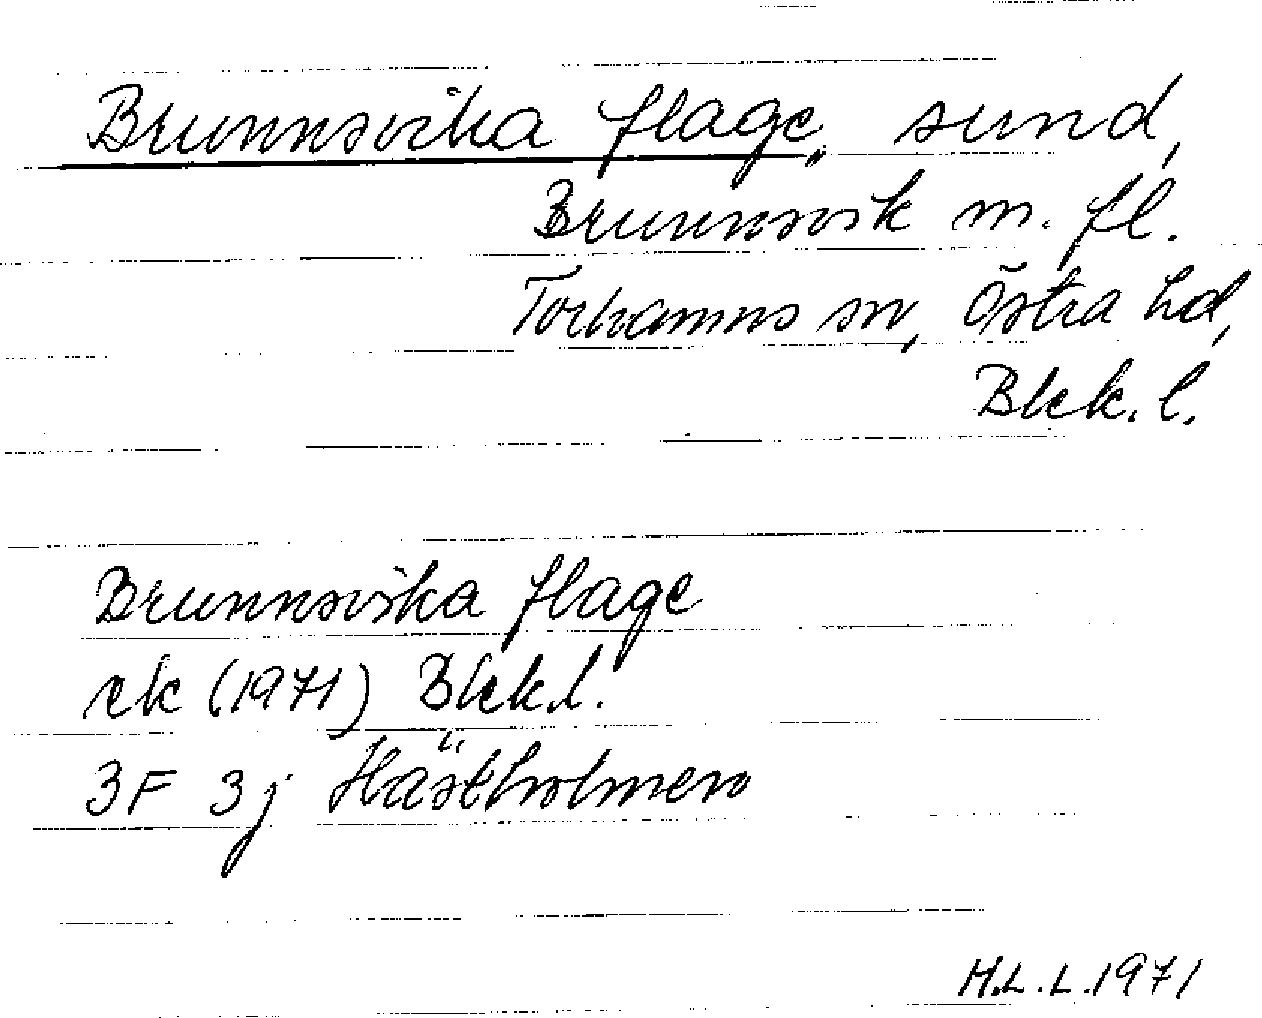 Brunnsvika flage, sund,
Brunnsvik m. fl.
Torhamns sn, Östra hd,
Blek. l.
Brunnsvika flage
ek (1971) Blek.l.
3F 3j Hästholmen
M.L.L. 1971